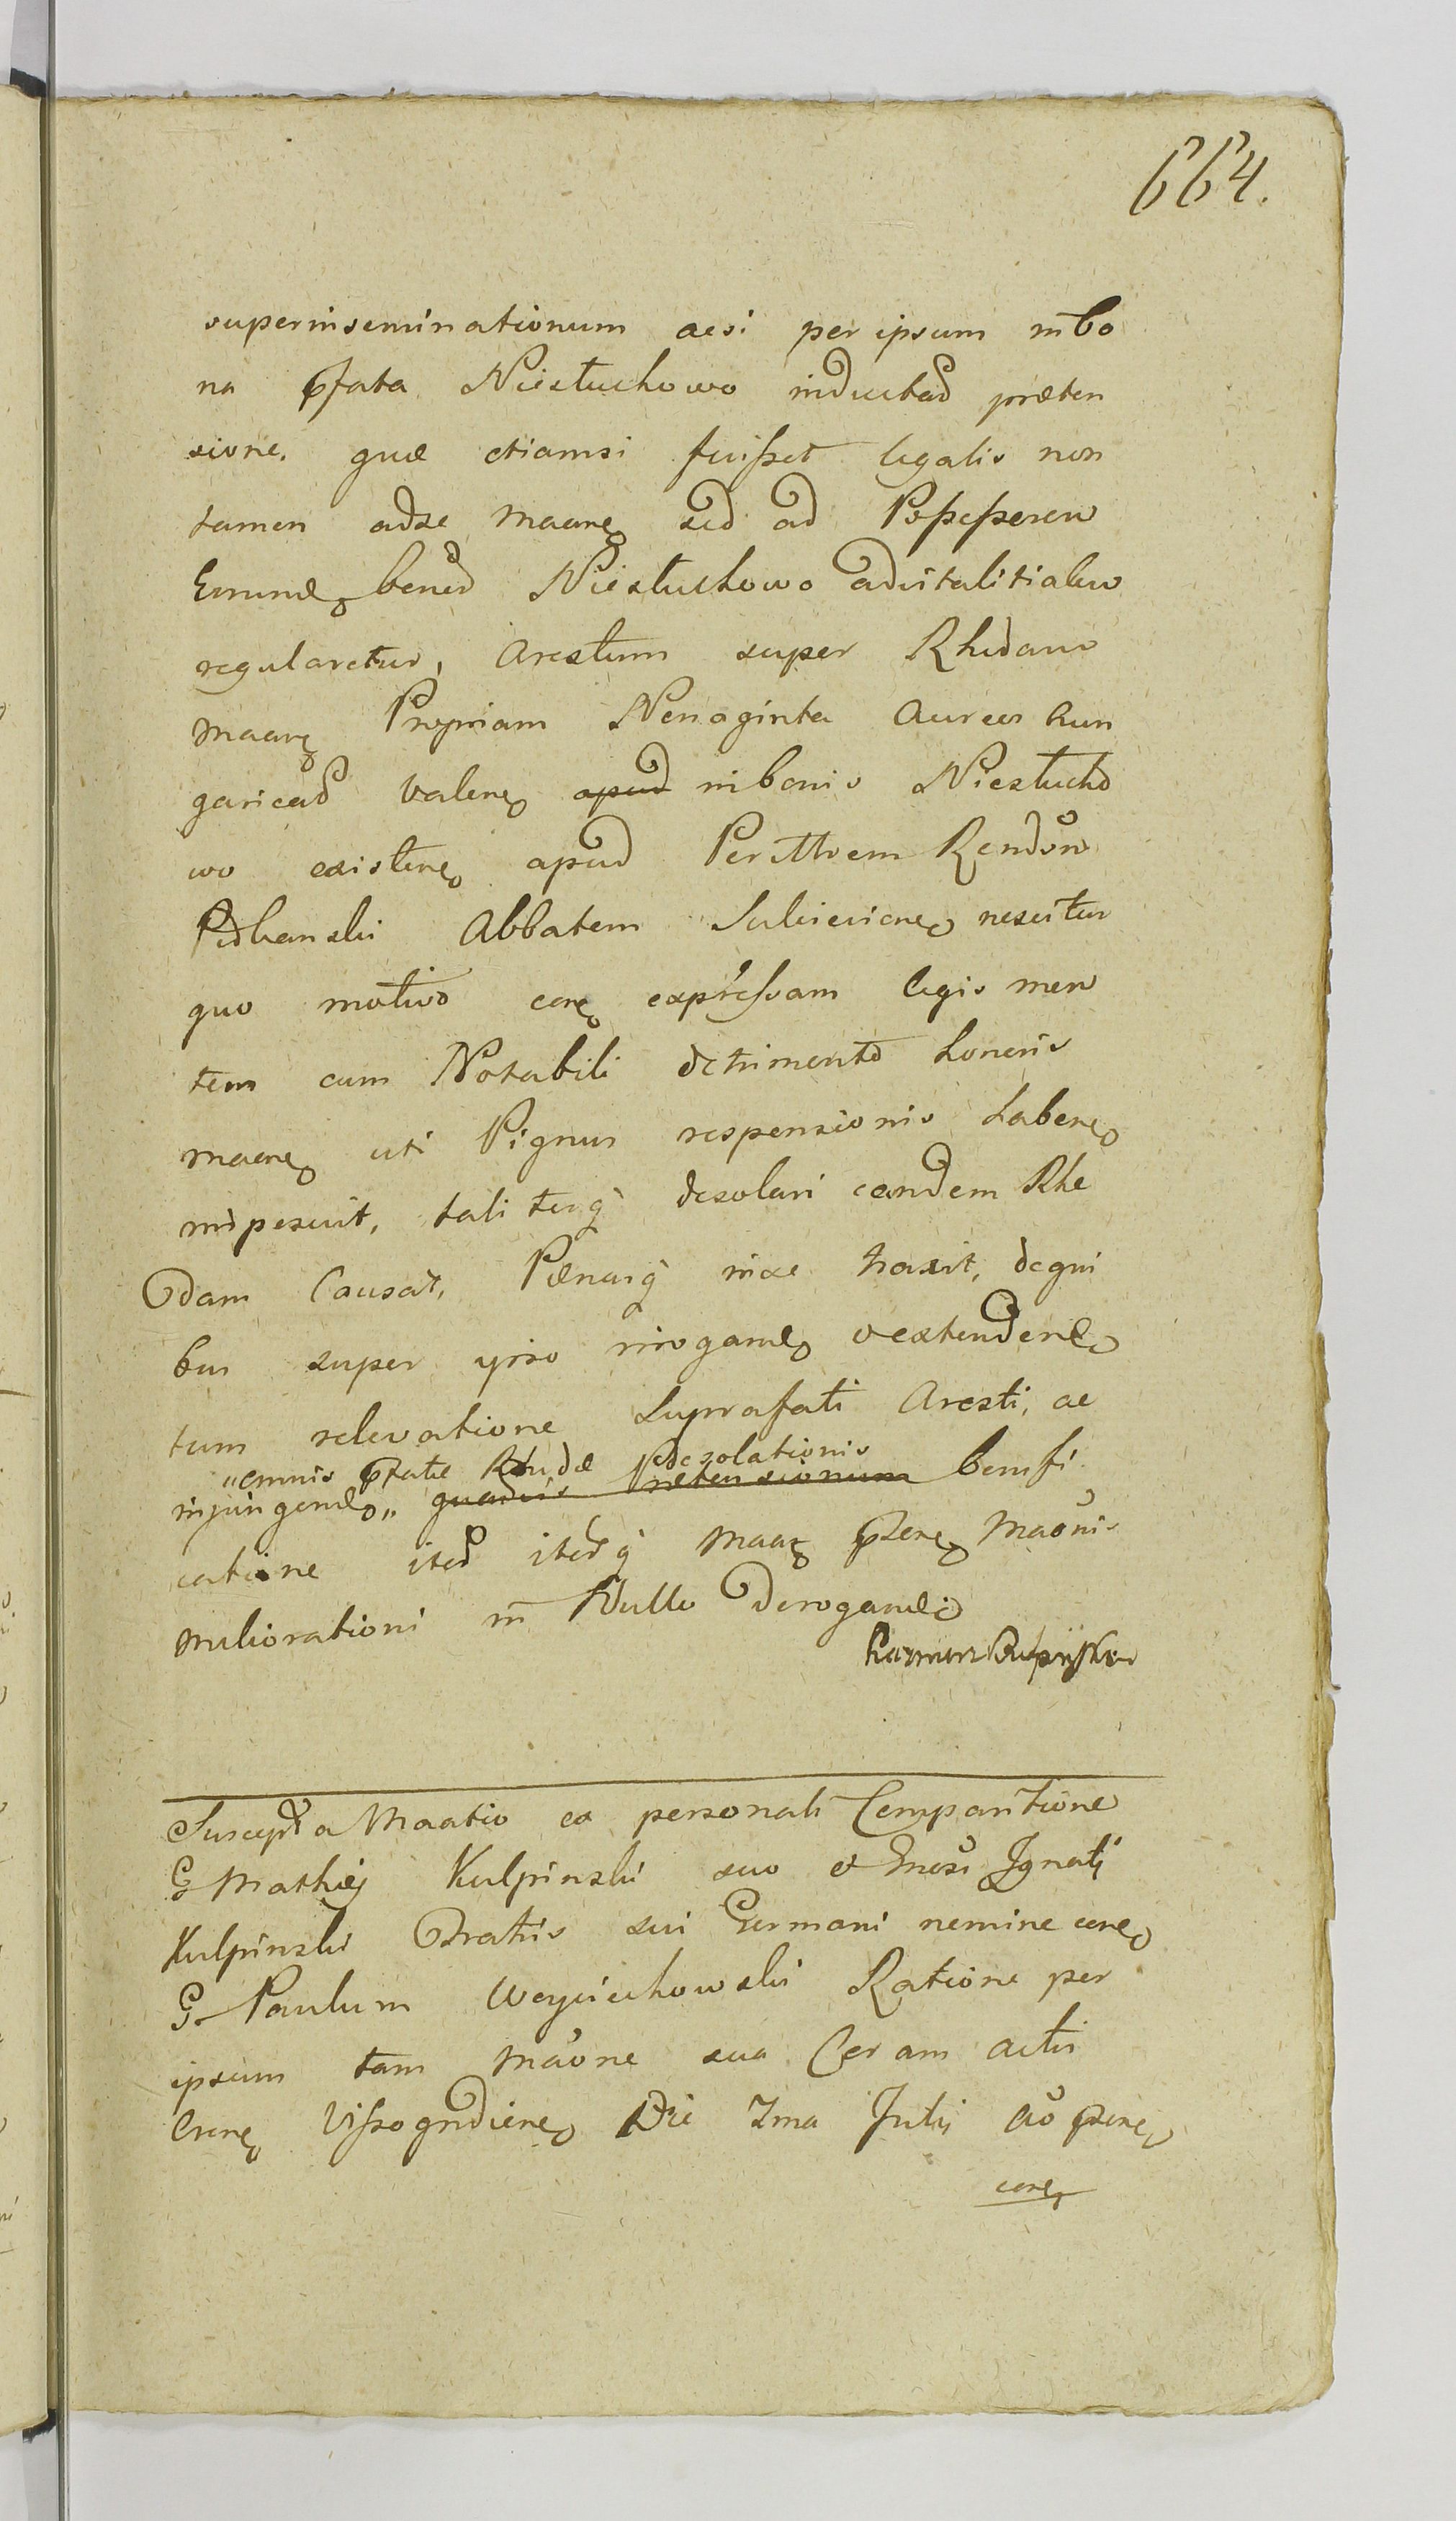 664.
superinseminationum acsi per ipsum in bo
na pfata Niestuchowo inductad præten
sione. quæ etiamsi fuisset legalis non
tamen ad se maane sed ad Possessorem
Eorund bonod Niestuchowo advitalitialem
regularetur, Arestum super Rhedam
maane Propriam Nonaginta Aureos hun
garicad valene apud in bonis Niestucho
wo existene apud Perittrem Rendum
Abbatem nescitur
quo motivo cone expressam legis men
tem cum Notabili detrimento honeris
maane uti Pignus responsionis habene
imposuit, taliterq desolari eandem Rhe
dam Causat, Pænasq in se traxit, de qui
bus super ipso irrogand et extendend
tum relevatione suprafati Aresti, ac
"omnis pfatæ Rhedæ desolationis
injungend" quarvis Prætensionum bonifi
catione ited itedq maane pzene maonis
meliorationi in Nullo derogando
Suscepta Maatio ex personali Comparitione
G Mathiej Kulpinski suo et Gnosi Ignatij
Kulpinski Fratris sui Germani nomine cone
G. Paulum Woyciechowski Ratione per
ipsum tam maone sua Coram actis
Crene Vissogrodiene Die 1ma Julij ao pzene
cone